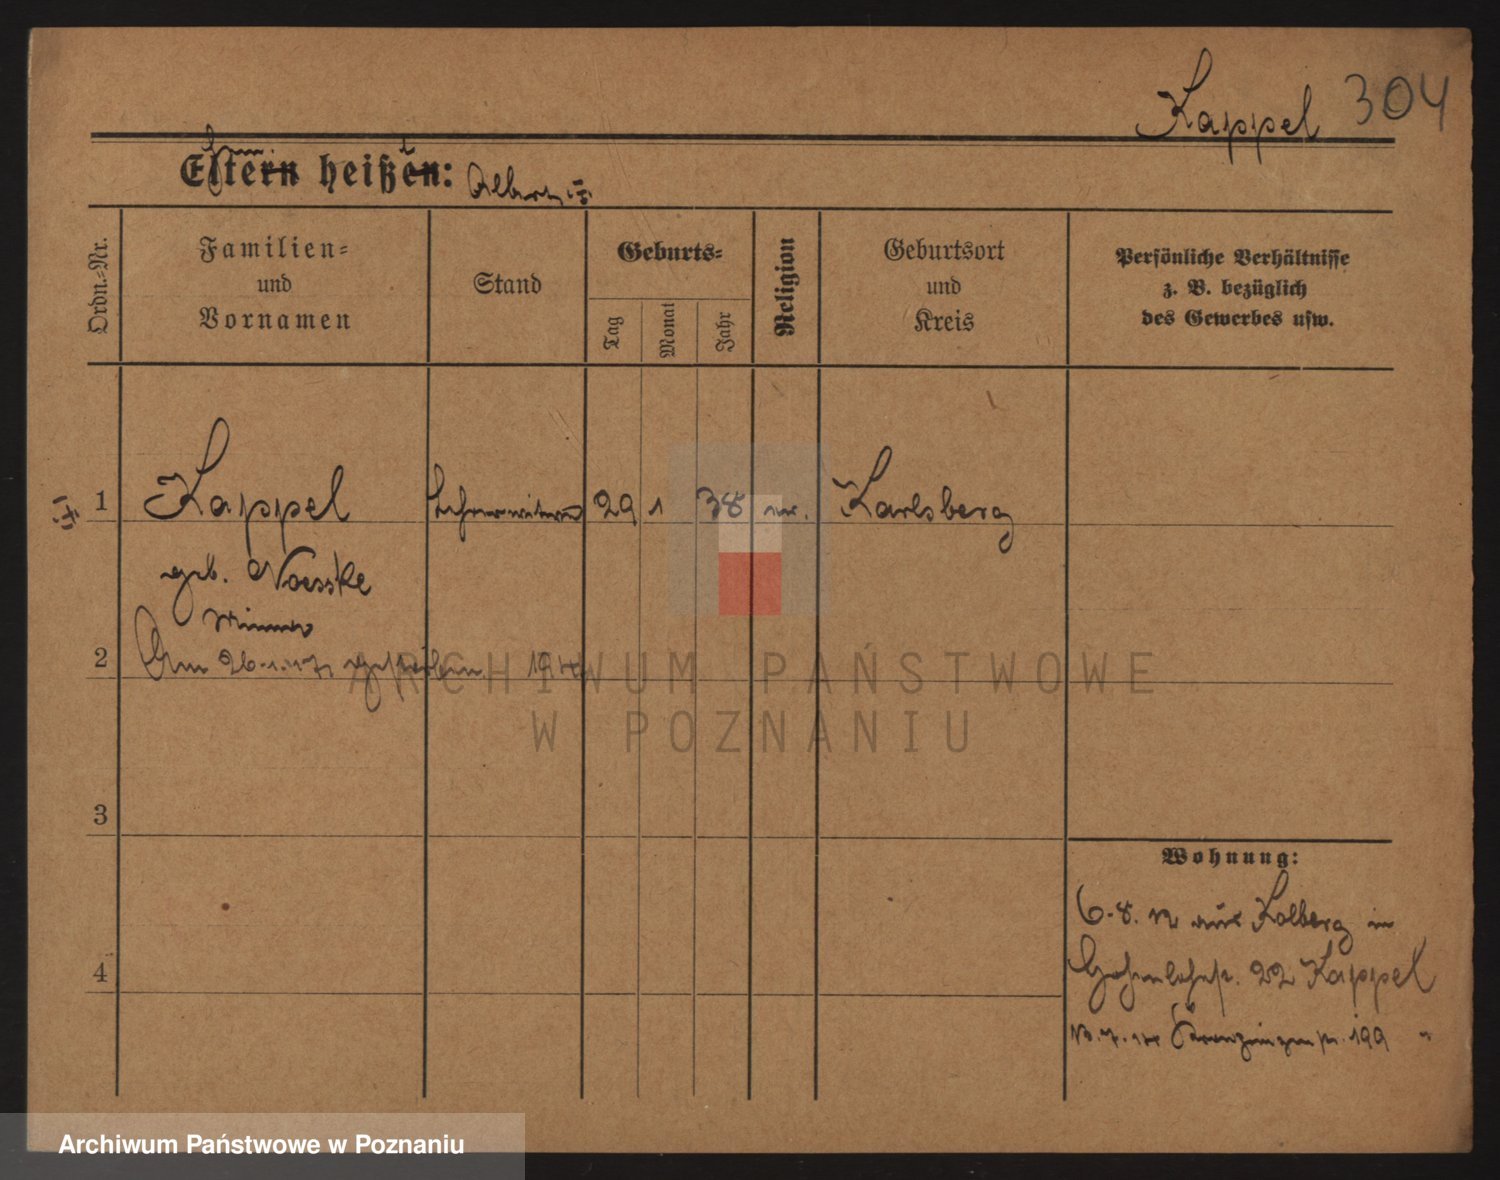 Kappel 304
Eltern heißen: Albert
Ordn.-Nr.
Familien-
und
Vornamen
Stand
Geburts-
Tag
Monat
Jahr
Religion
Geburtsort
und
Kreis
Persönliche Verhältnisse
z. B. bezüglich
des Gewerbes usw.
1 Kappel Lehrerwitwe 29 1 38 ev. Karlsberg
geb. Noesske
Minna
2 Am 26.1.17 gestorben
3
4
Wohnung:
6.8. aus Kolberg in
Hohenlohestr. 22 Kappel
199 "
ARCHIWUM PAŃSTWOWE
W POZNANIU
Archiwum Państwowe w Poznaniu